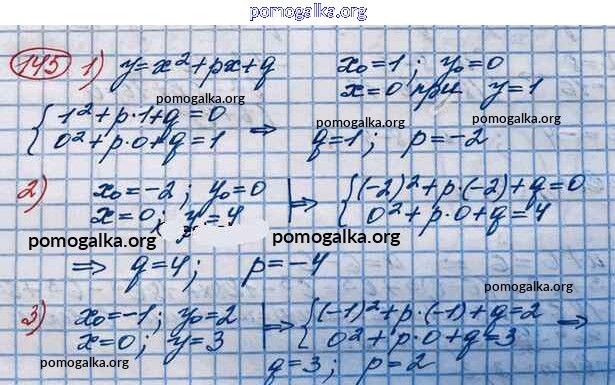 pomogalka.org
145 1) y=x²+px+q x₀=1; y₀=0
x=0 при y=1
pomogalka.org
{1²+p·1+q=0
0²+p·0+q=1 ⇒ q=1; p=-2
pomogalka.org
pomogalka.org
2) x₀=-2; y₀=0
x=0; y=4 ⇒ {(-2)²+p·(-2)+q=0
0²+p·0+q=4
pomogalka.org
pomogalka.org
pomogalka.org
⇒ q=4; p=-4
pomogalka.org
3) x₀=-1; y₀=2
x=0; y=3 ⇒ {(-1)²+p·(-1)+q=2
0²+p·0+q=3 ⇒
pomogalka.org
pomogalka.org
q=3; p=2